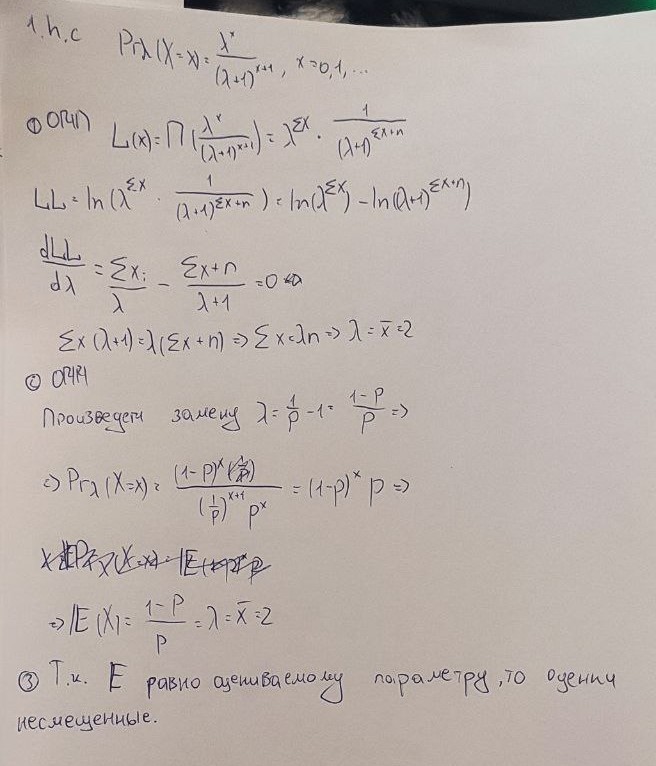 1.h.c Prλ(X=x)= λ^x / (λ+1)^(x+1), x=0,1,...
① ОМП L(x)= Π(λ^x / (λ+1)^(x+1)) = λ^(Σx) · 1 / (λ+1)^(Σx+n)
LL = ln(λ^(Σx) · 1 / (λ+1)^(Σx+n)) = ln(λ^(Σx)) - ln(λ+1)^(Σx+n)
dLL/dλ = Σxi/λ - (Σx+n)/(λ+1) = 0
Σx(λ+1)=λ(Σx+n) => Σx=λn => λ = x̄=2
② ОММ
Произведем замену λ= 1/p -1 = (1-p)/p =>
=> Prλ(X=x)= (1-p)^x / ((1/p)^(x+1) p^x) = (1-p)^x p =>
=> E(X)= (1-p)/p = λ = x̄ = 2
③ Т.к. E равно оцениваемому параметру, то оценки
несмещенные.